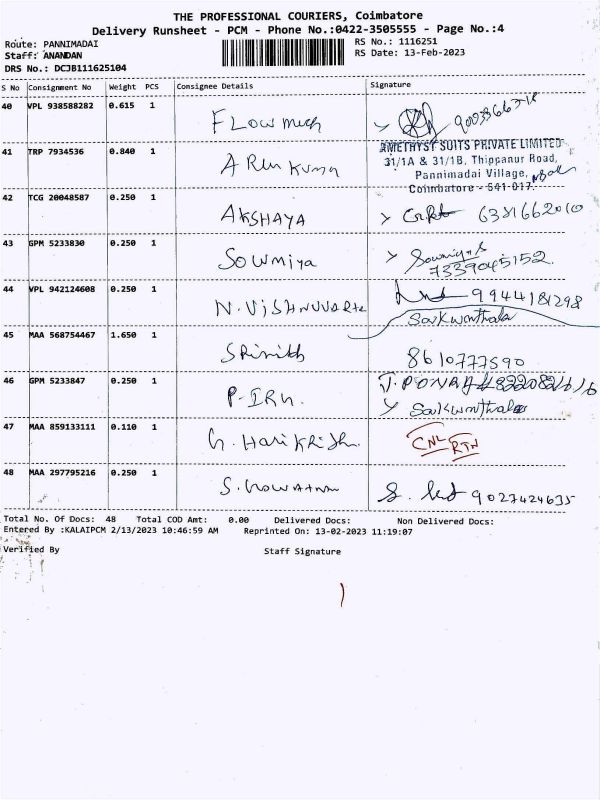 THE PROFESSIONAL COURIERS, Coimbatore
Delivery Runsheet - PCM - Phone No.:0422-3505555 - Page No.:4
Route: PANNIMADAI RS No.: 1116251
Staff: ANANDAN RS Date: 13-Feb-2023
DRS No.: DCJB111625104
S No Consignment No Weight PCS Consignee Details Signature
40 VPL 938588282 0.615 1
Flow mech
41 TRP 7934536 0.840 1
AMETHYST SUITS PRIVATE LIMITED
31/1A & 31/1B, Thippanur Road,
Pannimadai Village,
Coimbatore - 641 017.
Arun Kumar
42 TCG 20048587 0.250 1
AKSHAYA 6381662010
43 GPM 5233830 0.250 1
Sowmiya 7339045152
44 VPL 942124608 0.250 1
N. Vishnuvarta 9944181298
Sakwnthala
45 MAA 568754467 1.650 1
Srinith 8610777590
46 GPM 5233847 0.250 1
P. IRU.
Sakwnthala
47 MAA 859133111 0.110 1
G. Hari Krish. CNL RTN
48 MAA 297795216 0.250 1
S. 9027424635
Total No. Of Docs: 48 Total COD Amt: 0.00 Delivered Docs: Non Delivered Docs:
Entered By :KALAIPCM 2/13/2023 10:46:59 AM Reprinted On: 13-02-2023 11:19:07
Verified By Staff Signature